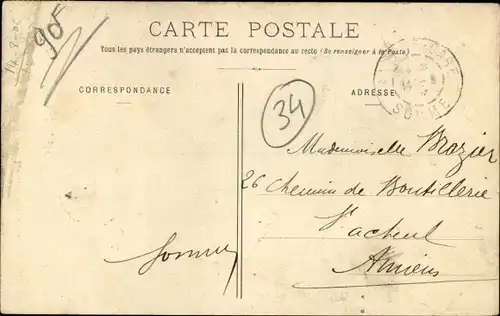 CARTE POSTALE
Tous les pays étrangers n'acceptent pas la correspondance au recto (Se renseigner à la Poste)
90f
CORRESPONDANCE
ADRESSE
SOMME
34
Mademoiselle Brazier
26 Chemin de Boutillerie
St acheul
Amiens